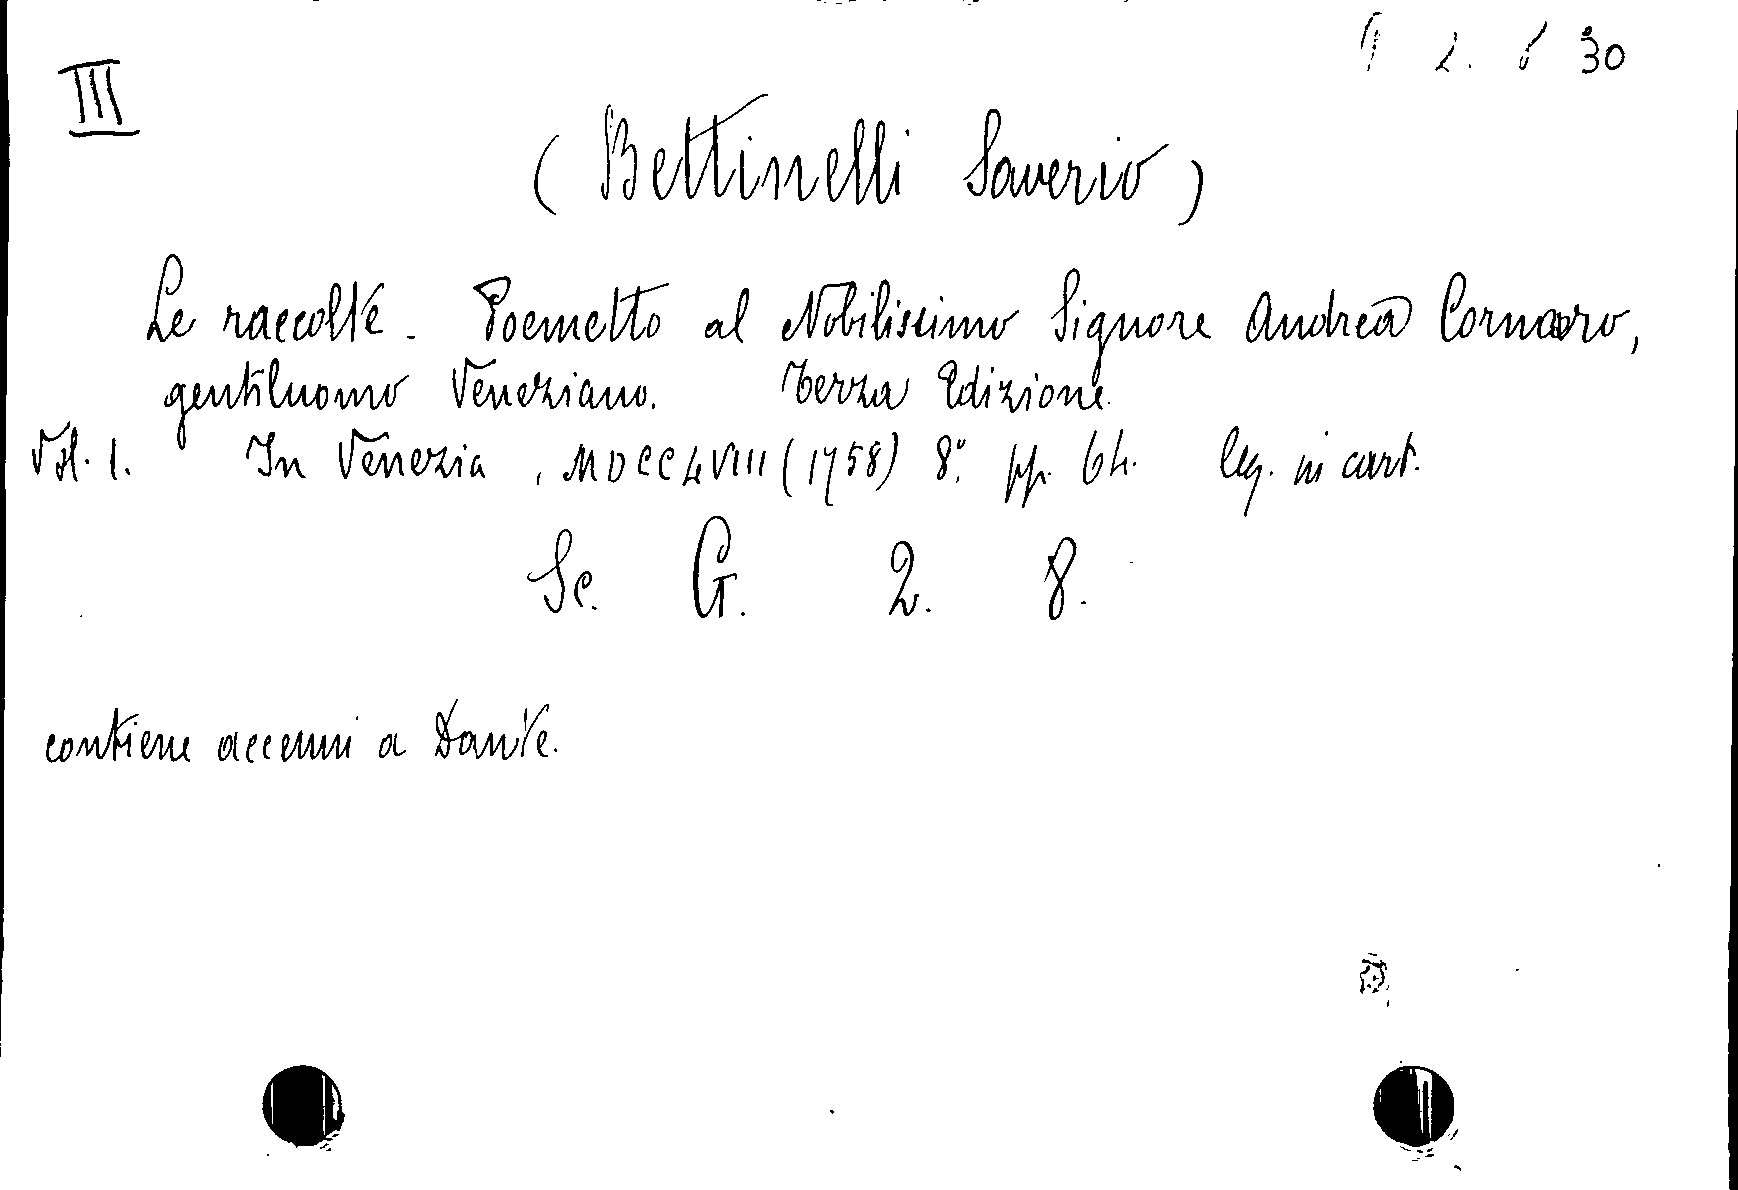 III
2. 30
(Bettinelli Saverio)
Le raccolte. Poemetto al Nobilissimo Signore Andrea Cornaro,
gentiluomo Veneziano. Terza Edizione.
Vol. 1. In Venezia, MDCCLVIII (1758) 8.° pp. 64. leg. in cart.
Sc. G. 2. 8.
contiene accenni a Dante.